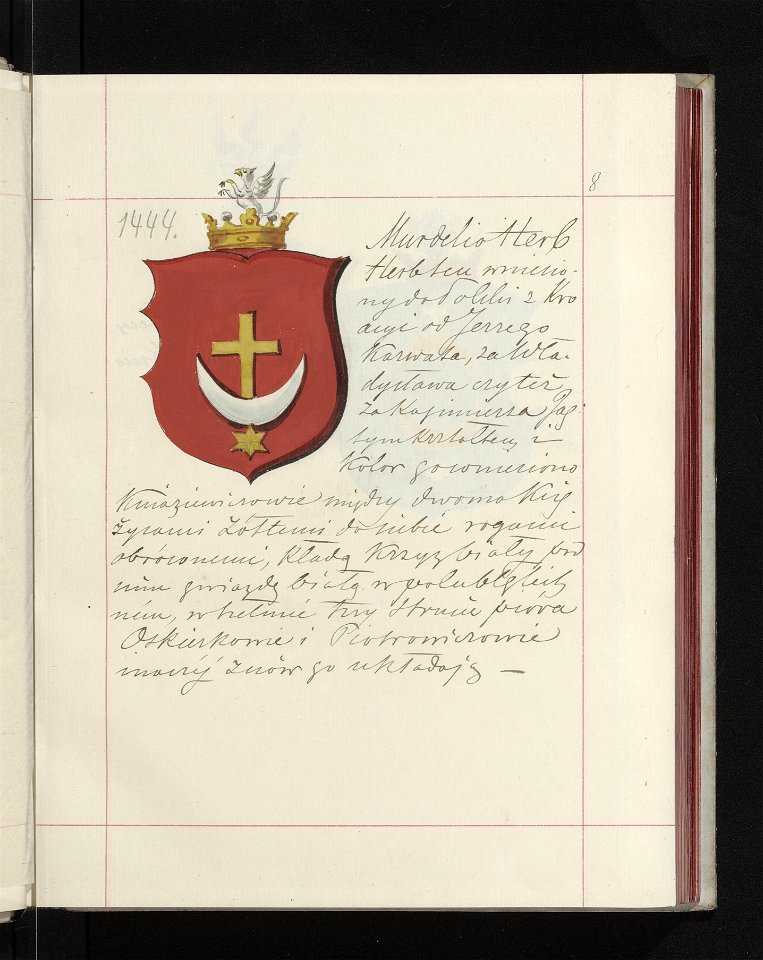 8
1444.
Murdelio Herb
Herb ten wniesio-
ny do Polski z Kro
acyi od Jerzego
Karwata, za Wła-
dysława czy też
za Kaźimierza Jag
tym kształtem i
kolor gownieniono
Kniaziewiczowie między dwoma Księ
życami żółtemi do siebie rogami
obróconemi, kładą Krzyż biały, pod
nim gwiazdę białą w polu błękit
ném, w hełmie trzy strusie pióra
Oskierkowie i Piotrowiczowie
inaczéj znów go układają —